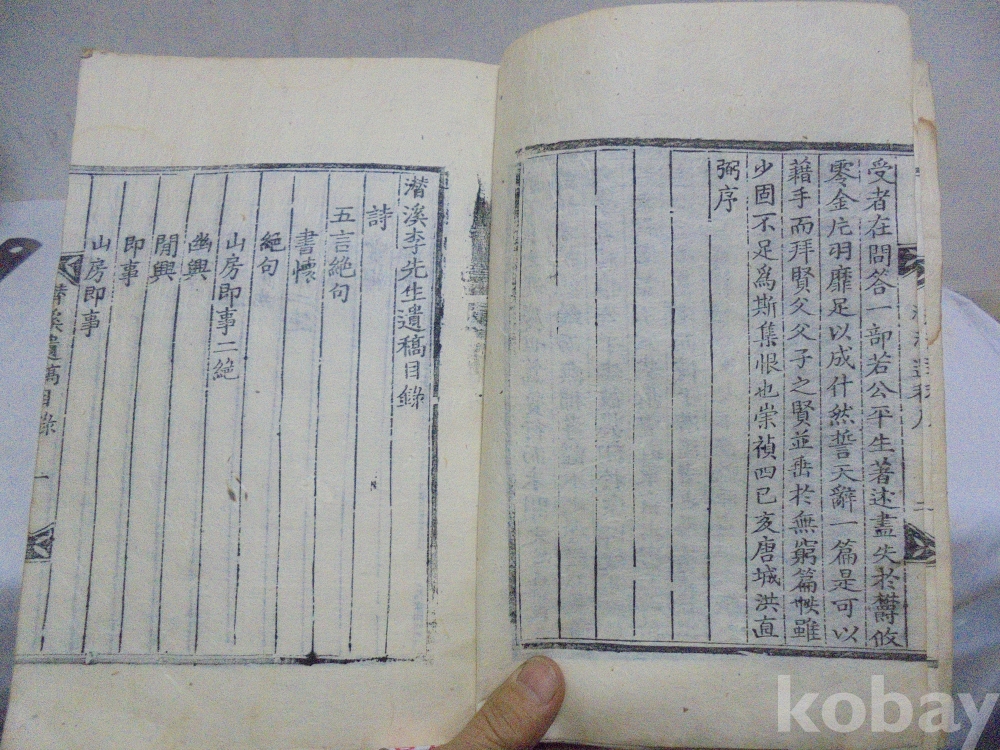 受者在問答一部若公平生著述盡失於鬱攸
零金片羽靡足以成什然誓天辭一篇是可以
藉手而拜賢父父子之賢並垂於無窮篇帙雖
少固不足爲斯集恨也崇禎四己亥唐城洪直
弼序
潛溪李先生遺稿目錄
詩
五言絶句
書懷
絶句
山房即事二絶
幽興
閒興
即事
山房即事
潛溪遺稿目錄
一
kobay